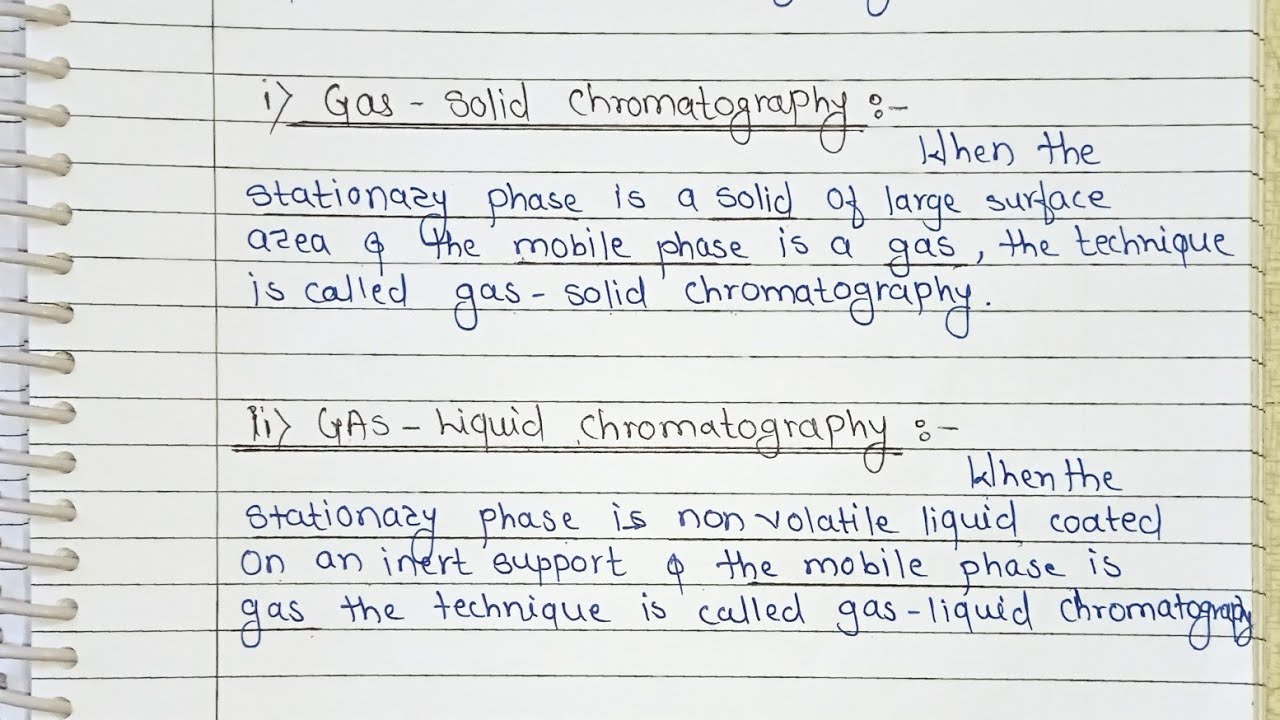 i) Gas - Solid Chromatography :-
When the
stationary phase is a solid of large surface
area & the mobile phase is a gas, the technique
is called gas - solid chromatography.
ii) GAS - Liquid Chromatography :-
When the
stationary phase is non volatile liquid coated
on an inert support & the mobile phase is
gas the technique is called gas-liquid chromatography